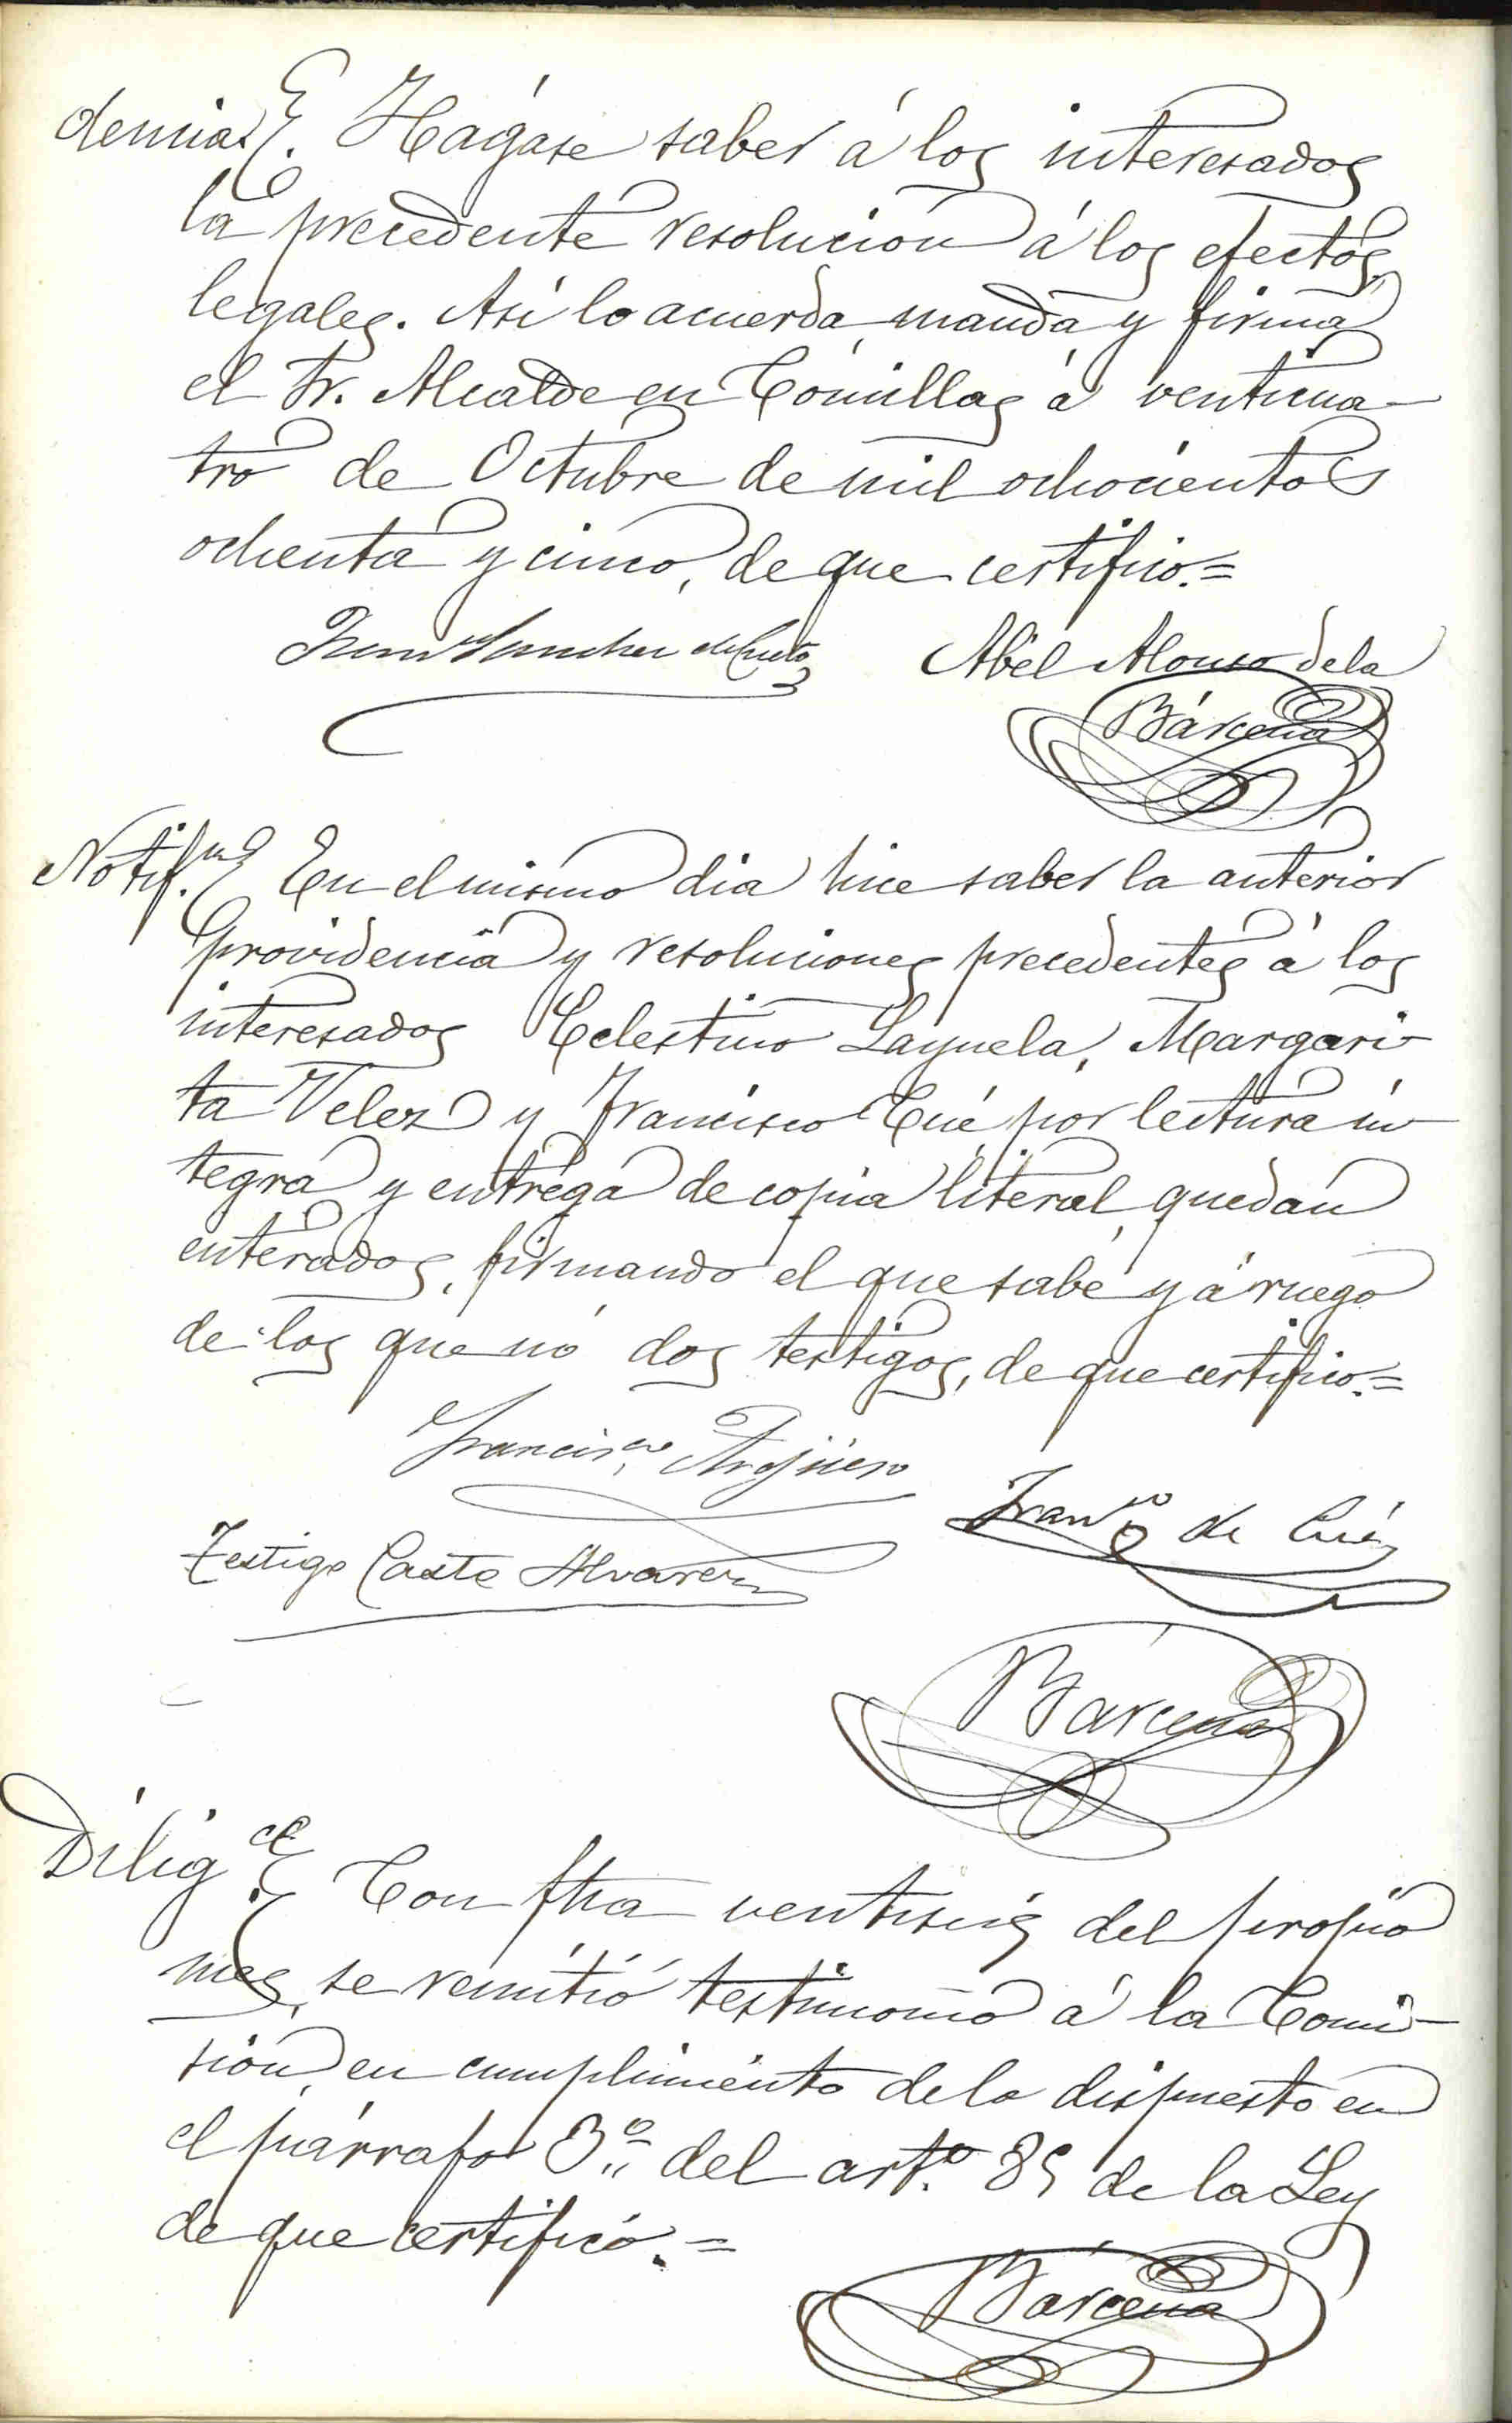 dencia. Hágase saber á los interesados
la precedente resolucion á los efectos
legales. Asi lo acuerda, manda y firma
el Sr. Alcalde en Comillas á venticua-
tro de Octubre de mil ochocientos
ochenta y cinco, de que certifico.=
Juan Sanchez de Cueto
Abel Alonso de la
Bárcena
Notif.on En el mismo dia hice saber la anterior
providencia y resoluciones precedentes á los
interesados Celestino Layuela, Margari-
ta Velez y Francisco Cué por lectura ín-
tegra y entréga de copia literal, quedan
enterados, firmando el que sabe y á ruego
de los que nó dos testigos, de que certifico.=
Francisco
Franco de Cué
Testigo Casto Alvarez
Bárcena
Dilig.cia Con fha ventiseis del propio
mes, se remitió testimonio á la Comi-
sion, en cumplimiento de lo dispuesto en
el párrafo 3.º del art.º 89 de la Ley
de que certifico.=
Bárcena